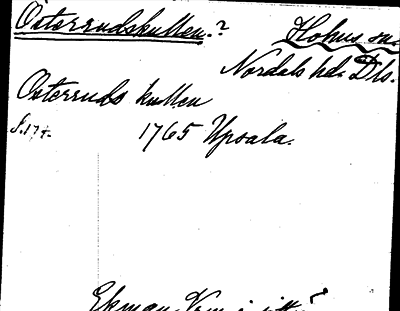 Österrudskullen.? Holms sn.
Nordals hd. Dls.
Österruds kullen
s. 174. 1765 Upsala.
Ekman, i